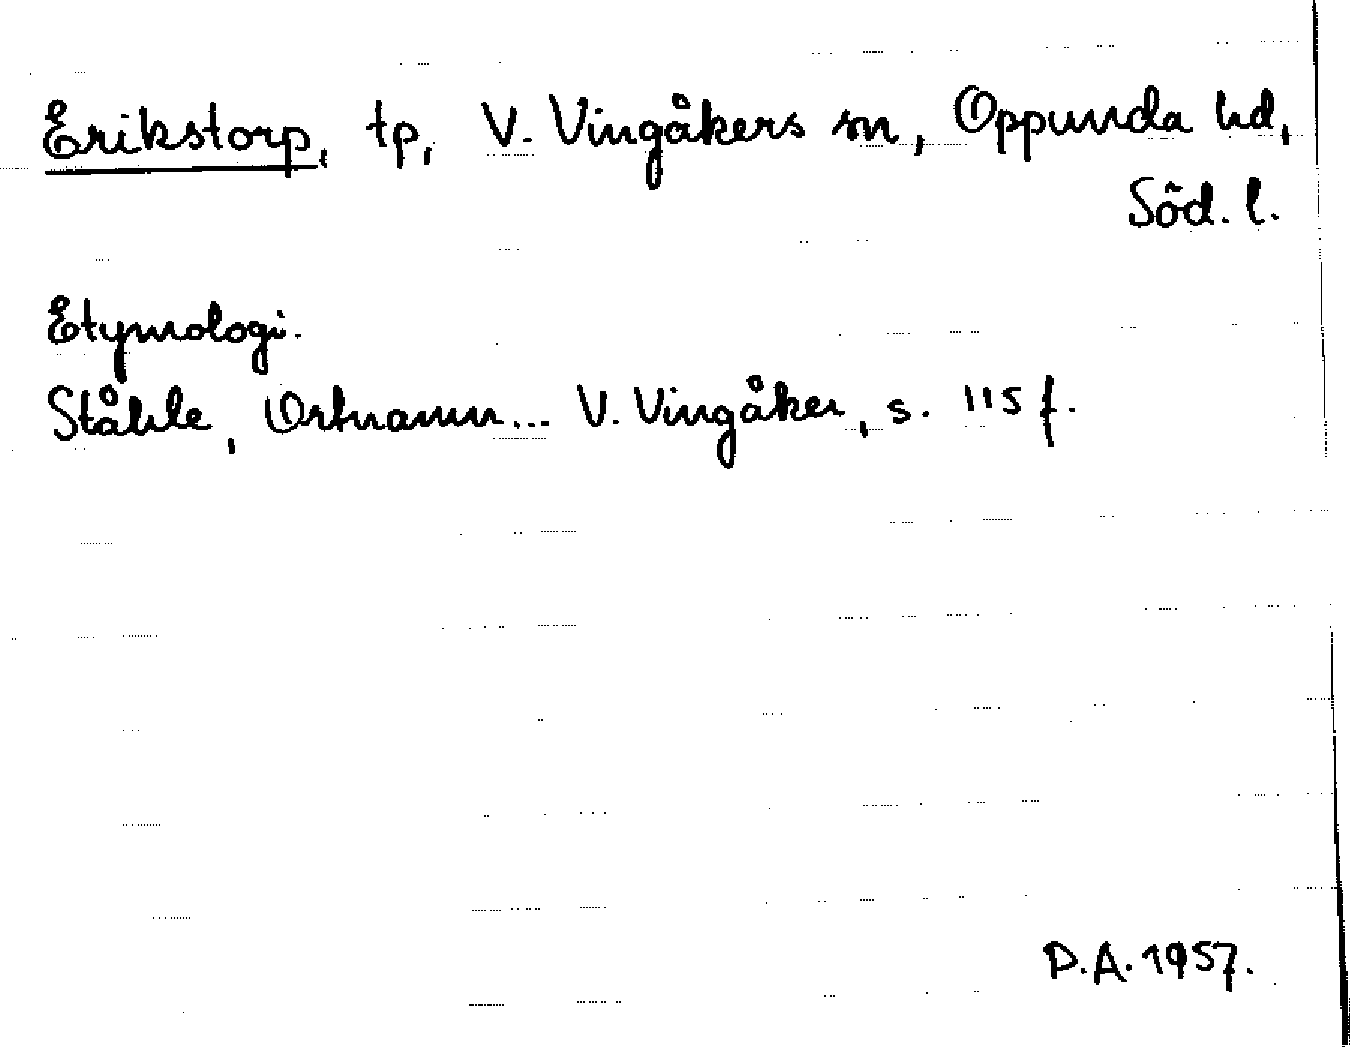 Erikstorp, tp, V. Vingåkers sn, Oppunda hd,
Söd. l.
Etymologi.
Ståhle, Ortnamn... V. Vingåker, s. 115 f.
D.A. 1957.